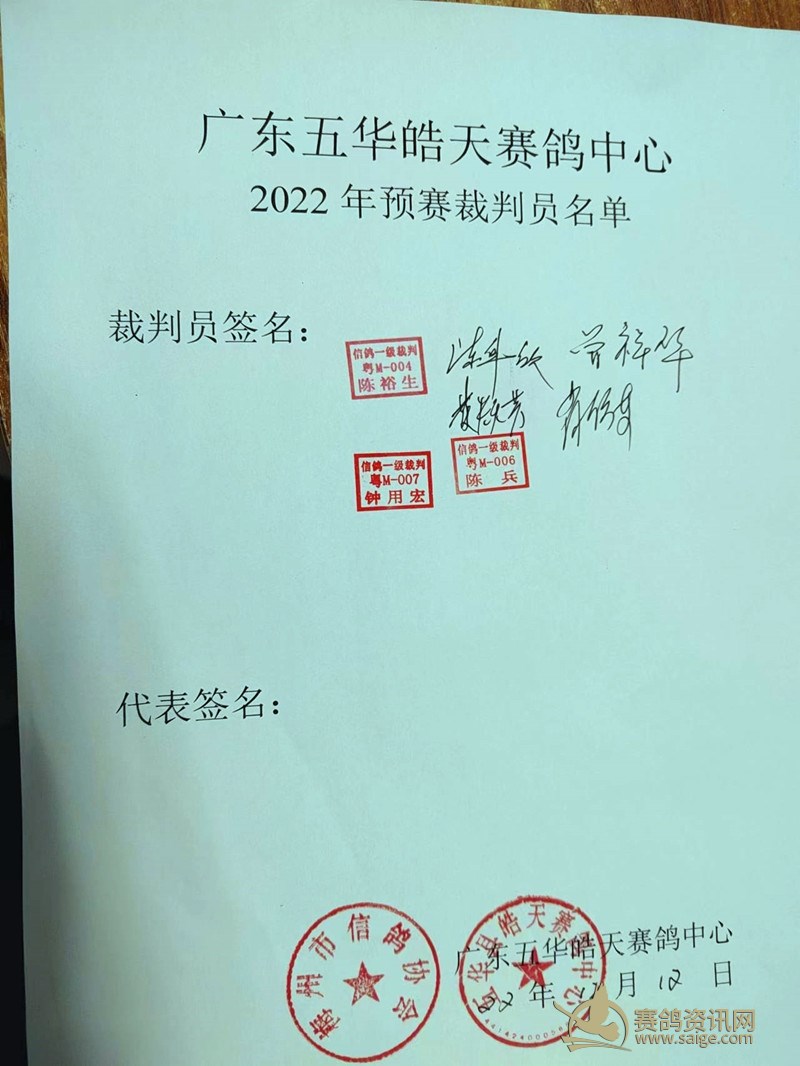 广东五华皓天赛鸽中心
2022 年预赛裁判员名单
裁判员签名：
信鸽一级裁判
粤M-004
陈裕生
曾祥华
信鸽一级裁判
粤M-007
钟用宏
信鸽一级裁判
粤M-006
陈 兵
代表签名：
梅州市信鸽协会
五华县皓天赛鸽中心
广东五华皓天赛鸽中心
年 12 月 12 日
赛鸽资讯网
www.saige.com